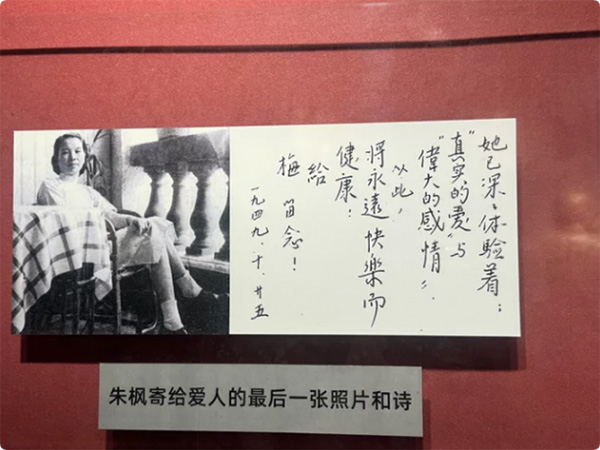 她已深深体验着：
“真实的爱”与
“偉大的感情”。
以此，
将永遠快樂而
健康！
給
梅 留念！
一九四九、十、廿五
朱枫寄给爱人的最后一张照片和诗